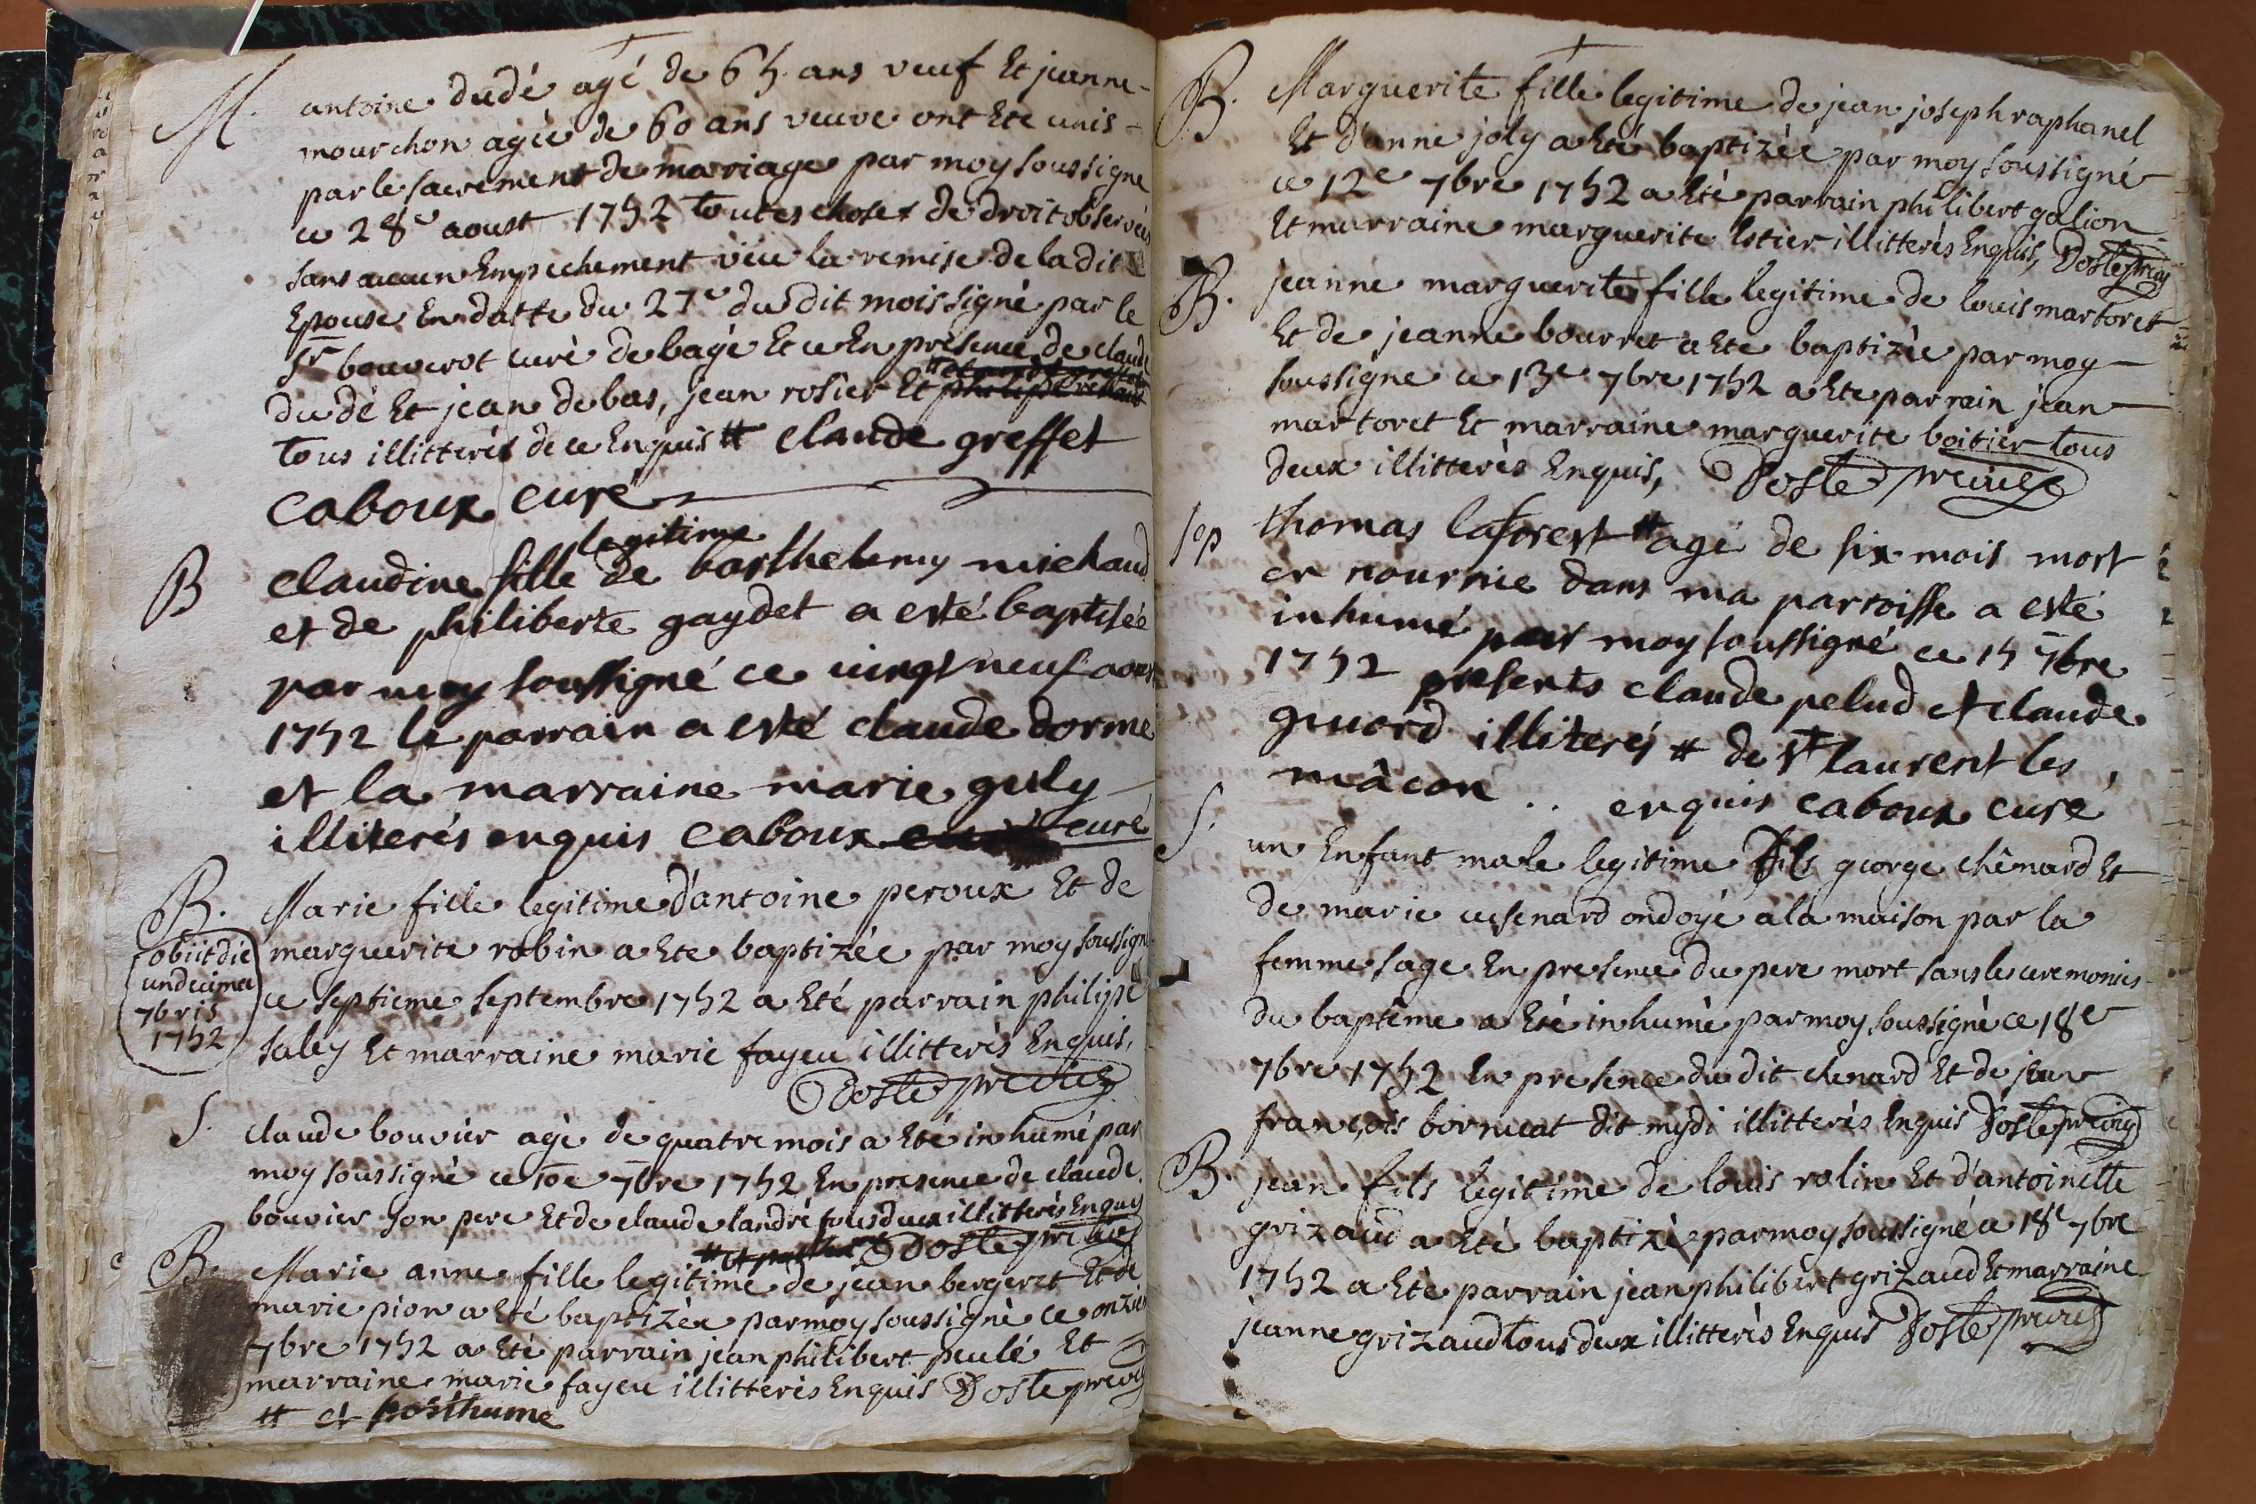 M. antoine dudé agé de 65 ans veuf Et jeanne
mourchon agée de 60 ans veuve ont Ete unis
par le sacrement de mariage par moy soussigné
ce 28e aoust 1752 toutes choses de droit observées
sans aucun Empechement veu la remise de la dite
Epouse En datte du 27e du dit mois signé par le
sr bouverot curé de bagé Et ce En presence de claude
dudé Et jean debas, jean rosier Et
tous illitterés de ce Enquis # claude greffet
caboux curé
legitime
B claudine fille de barthelemy michaud
et de philiberte gaydet a esté baptisée
par moy soussigné ce vingt neuf aoust
1752 le parrain a esté claude dorme
et la marraine marie guly
illiterés enquis caboux curé
B. Marie fille legitime d'antoine peroux Et de
obiit die undecima 7bris 1752
marguerite robin a Ete baptizée par moy soussigné
ce septieme septembre 1752 a Eté parrain philipe
saley Et marraine marie fayeu illitterés Enquis,
Doste previcg
S. claude bouvier agé de quatre mois a Eté inhumé par
moy soussigné ce 10e 7bre 1752 En presence de claude
bouvier son pere Et de claude landré tous deux illitterés Enquis
Doste previcg
B. Marie anne fille legitime # de jean bergeret Et de
marie pion a Eté baptizée par moy soussigné ce onzie
7bre 1752 a Eté parrain jean philibert peulé Et
marraine marie fayeu illitterés Enquis Doste previcg
# et posthume
B. Marguerite fille legitime de jean joseph raphanel
Et d'anne joly a Eté baptizée par moy soussigné
ce 12e 7bre 1752 a Eté parrain philibert galion
Et marraine marguerite Estier illitterés Enquis, Doste previcg
B. jeanne marguerite fille legitime de louis martoret
Et de jeanne bourret a Ete baptizée par moy
soussigné ce 13e 7bre 1752 a Ete parrain jean
martoret Et marraine marguerite boitier tous
deux illitterés Enquis, Doste previcg
sep thomas laforest # agé de six mois mort
en nourrie dans ma parroisse a esté
inhumé par moy soussigné ce 15 7bre
1752 presents claude pelud et claude
guiord illiterés # de st laurent les
mâcon .. enquis caboux curé
S. un Enfant male legitime fils george chênard Et
de marie cusenard ondoyé a la maison par la
femme sage En presence du pere mort sans les ceremonies
du baptême a Eté inhumé par moy soussigné ce 18e
7bre 1752 En presence du dit chenard Et de jean
françois borrucat dit mydi illitterés Enquis Doste previcg
B. jean fils legitime de louis rolin Et d'antoinette
grizaud a Eté baptizé par moy soussigné ce 18e 7bre
1752 a Eté parrain jean philibert grizaud Et marraine
jeanne grizaud tous deux illitterés Enquis Doste previcg